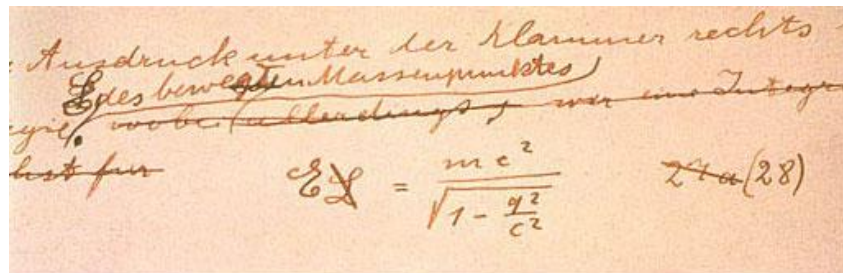 Ausdruck unter der Klammer rechts
des bewegten Massenpunktes
gie, wobei (allerdings, wir eine Integr
hst für
E L = mc² / √(1 - q²/c²) 27a (28)